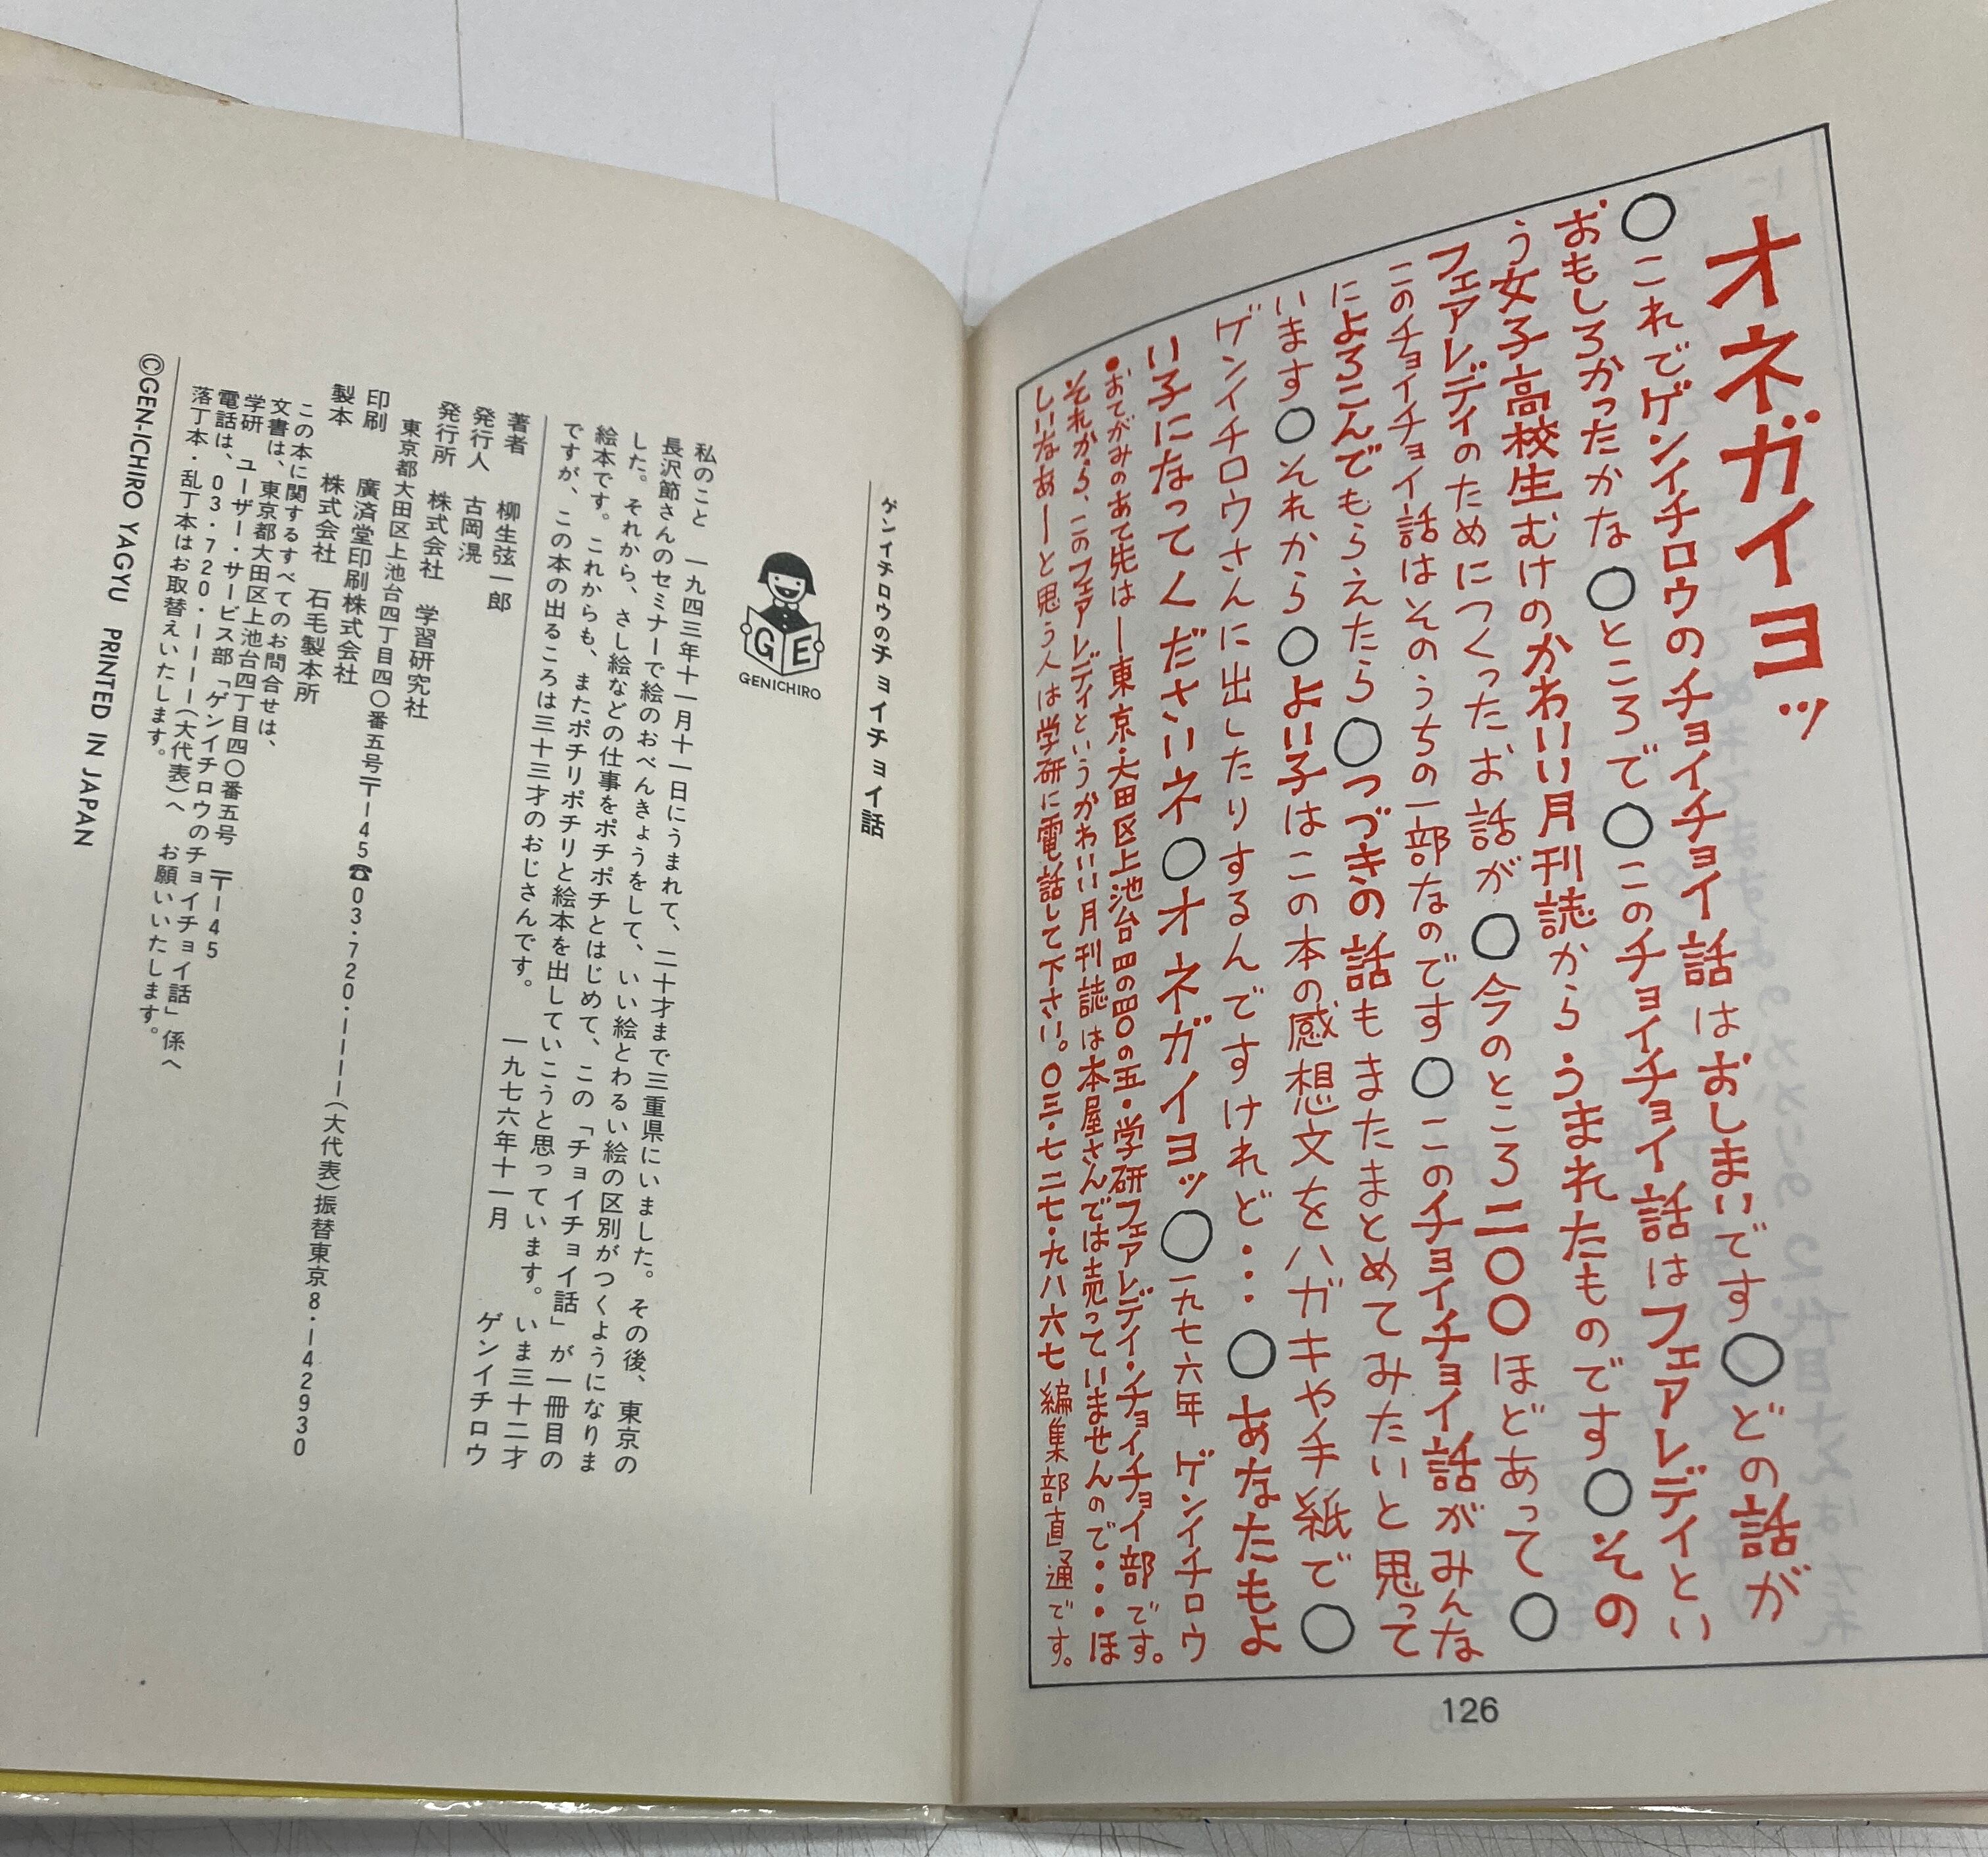 オネガイヨッ
○これでゲンイチロウのチョイチョイ話はおしまいです○どの話が
おもしろかったかな○ところで○このチョイチョイ話はフェアレディとい
う女子高校生むけのかわいい月刊誌から、うまれたものです○その
フェアレディのためにつくったお話が○今のところ二〇〇ほどあって○
このチョイチョイ話はそのうちの一部なのです○このチョイチョイ話がみんな
によろこんでもらえたら○つづきの話もまたまとめてみたいと思って
います○それから○よい子はこの本の感想文をハガキや手紙で○
ゲンイチロウさんに出したりするんですけれど・・・○あなたもよ
い子になってくださいネ○オネガイヨッ○一九七六年 ゲンイチロウ
●おてがみのあて先は—東京・大田区上池台四の四〇の五・学研フェアレディ・チョイチョイ部です。
それから、このフェアレディというかわいい月刊誌は本屋さんでは売っていませんので・・・ほ
しいなあ—と思う人は学研に電話して下さい。〇三・七二七・九八六七 編集部直通です。
126
ゲンイチロウのチョイチョイ話
GE
GENICHIRO
私のこと 一九四三年十一月十一日にうまれて、二十才まで三重県にいました。その後、東京の
長沢節さんのセミナーで絵のおべんきょうをして、いい絵とわるい絵の区別がつくようになりま
した。それから、さし絵などの仕事をポチポチとはじめて、この「チョイチョイ話」が一冊目の
絵本です。これからも、またポチリポチリと絵本を出していこうと思っています。いま三十二才
ですが、この本の出るころは三十三才のおじさんです。 一九七六年十一月 ゲンイチロウ
著者 柳生弦一郎
発行人 古岡滉
発行所 株式会社 学習研究社
東京都大田区上池台四丁目四〇番五号〒145☎03・720・1111(大代表)振替東京8・142930
印刷 廣済堂印刷株式会社
製本 株式会社 石毛製本所
この本に関するすべてのお問合せは、
文書は、東京都大田区上池台四丁目四〇番五号 〒145
学研 ユーザー・サービス部「ゲンイチロウのチョイチョイ話」係へ
電話は、03・720・1111(大代表)へ お願いいたします。
落丁本・乱丁本はお取替えいたします。
©GEN-ICHIRO YAGYU PRINTED IN JAPAN